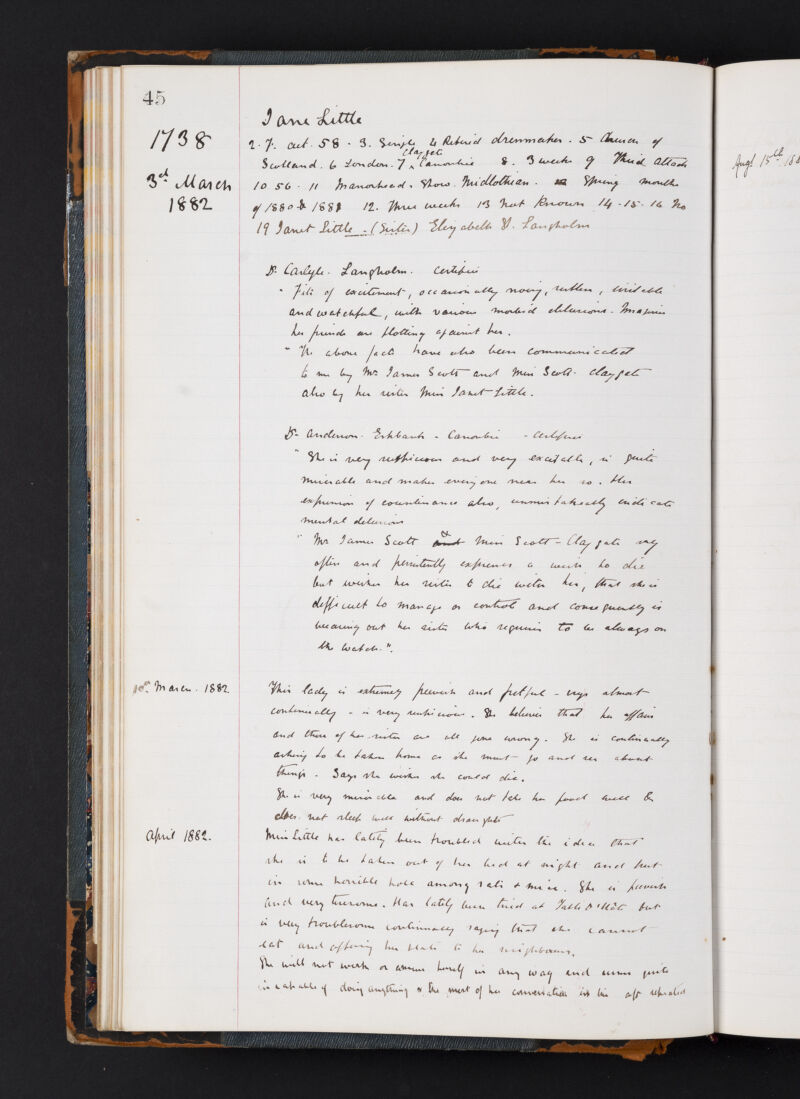 45
Jane Little
1738
3rd March
1882
2. F. aet. 58. 3. Single 4 Retired dressmaker. 5 Church of
Scotland. 6 London. 7 Claygate Canonbie 8. 3 weeks 9 Third attack
10 56. 11 Manorhead. Stow. Midlothian. Spring months
of 1880 & 1881 12. Three weeks 13 Not known 14. 15. 16 No
19 Janet Little. (Sister) Elizabeth St. Langholm
Dr. Carlyle. Langholm. certifies
" Fits of excitement, occasionally noisy, restless, irritable
and watchful, with various morbid delusions. Imagines
her friends are plotting against her.
" The above facts have also been communicated
to me by Mr. James Scott and Miss Scott. Claygate
also by her sister Miss Janet Little.
Dr. Anderson. Eskbank. Canonbie - certifies
" She is very suspicious and very excitable, is quite
miserable and makes everyone near her so. Her
expression of countenance also, unmistakeably indicate
mental delusions
" Mr. James Scott & Miss Scott - Claygate say
often and persistently expresses a wish to die
but wishes her sister to die with her, that she is
difficult to manage or control and consequently is
wearing out her sister who requires to be always on
the watch.".
10th March. 1882
This lady is extremely peevish and fretful - crys almost
continually - is very suspicious. She believes that her affairs
and those of her sister are all gone wrong. She is continually
asking to be taken home as she must go and see about
things. Says she wishes she could die.
She is very miserable and does not take her food well &
does not sleep well without draughts
April 1882.
Miss Little has lately been troubled with the idea that
she is to be taken out of her bed at night and put
in some horrible hole among rats & mice. She is peevish
and very tiresome. Has lately been tried at Table D'Hôte but
is very troublesome continually saying that she cannot
eat and offering her plate to her neighbours.
She will not work or amuse herself in any way and seems quite
incapable of doing anything & the most of her conversation is the oft repeated
Augt 15th 188